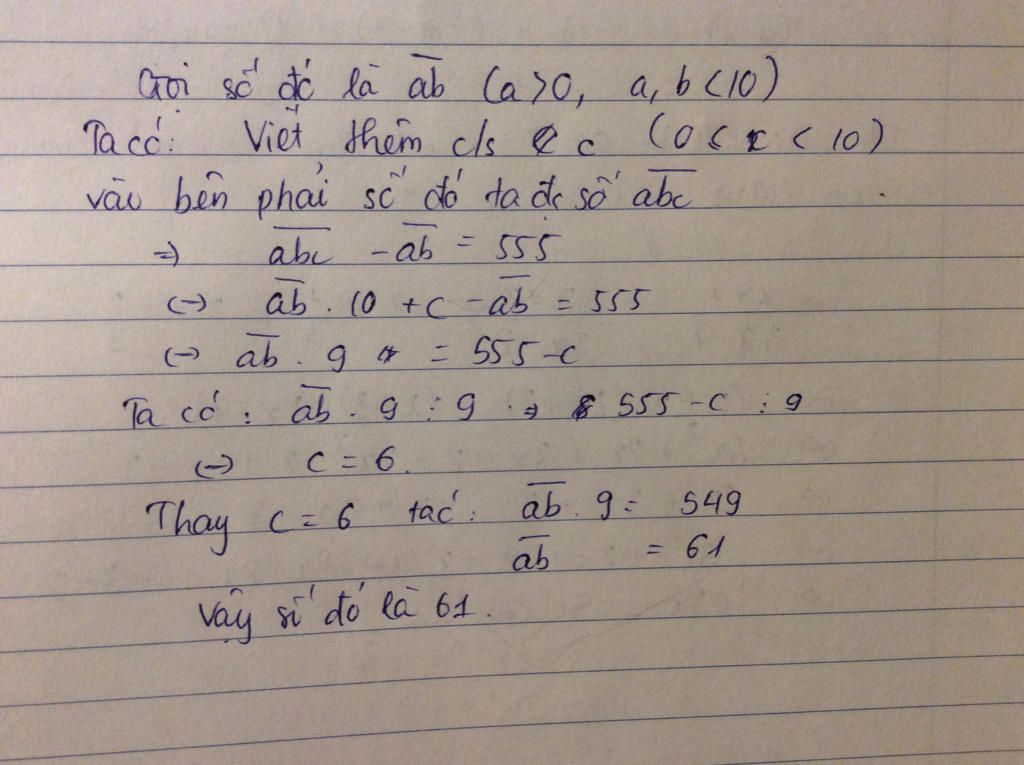 Gọi số đó là a̅b̅ (a>0, a, b <10)
Ta có: Viết thêm c/s c (0 < c < 10)
vào bên phải số đó ta đc số a̅b̅c̅
=> a̅b̅c̅ - a̅b̅ = 555
<-> a̅b̅ . 10 + c - a̅b̅ = 555
<-> a̅b̅ . 9 = 555 - c
Ta có : a̅b̅ . 9 ⋮ 9 => 555 - c ⋮ 9
<-> c = 6.
Thay c = 6 ta có: a̅b̅ . 9 = 549
a̅b̅ = 61
Vậy số đó là 61.